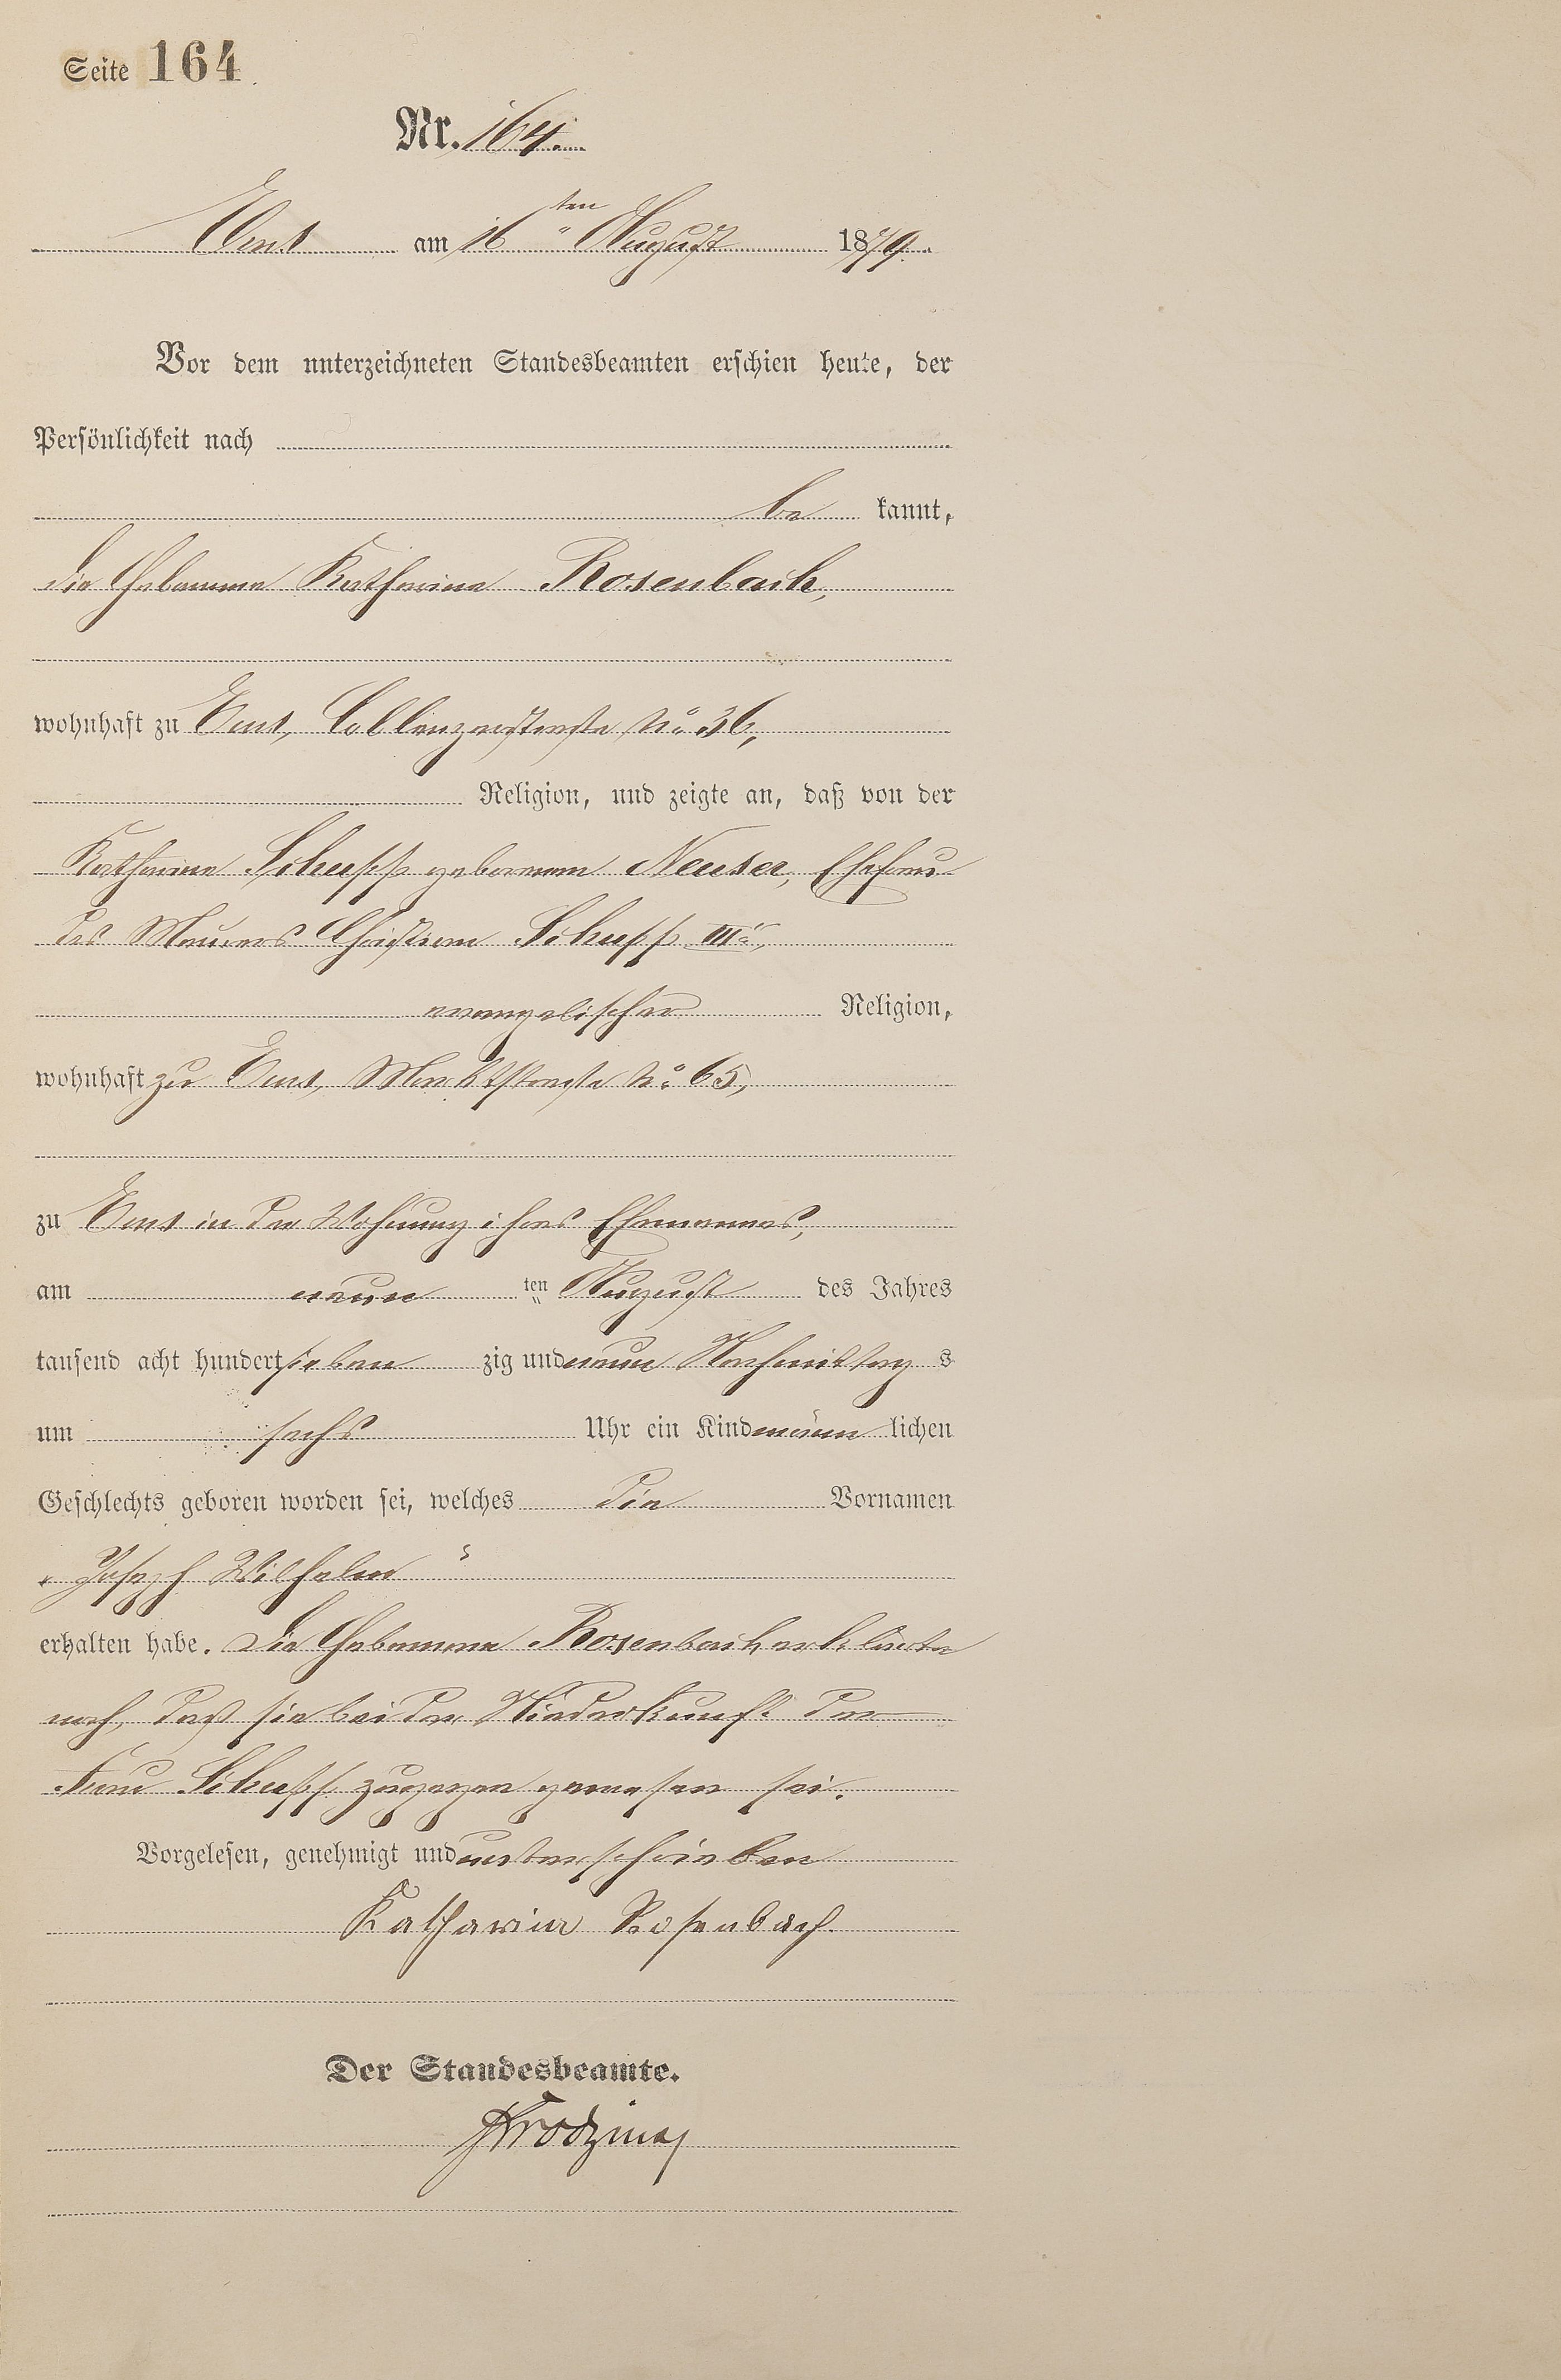 Seite 164
Nr. 164.
Ems am 16ten August 1879.
Vor dem unterzeichneten Standesbeamten erschien heute, der
Persönlichkeit nach
be kannt,
die Hebamme Katharina Rosenbach,
wohnhaft zu Ems, Coblenzerstraße No 36,
Religion, und zeigte an, daß von der
Katharina Schupp geborenen Neuser, Ehefrau
des Maurers Christian Schupp IIIr,
evangelischer Religion,
wohnhaft zu Ems, Marktstraße No 65,
zu Ems in der Wohnung ihres Ehemannes,
am neun ten August des Jahres
tausend acht hundert sieben zig und neun Nachmittag s
um sechs Uhr ein Kind männ lichen
Geschlechts geboren worden sei, welches die Vornamen
„Joseph Wilhelm“
erhalten habe. Die Hebamme Rosenbach erklärte
noch, daß sie bei der Niederkunft der
Frau Schupp zugegen gewesen sei.
Vorgelesen, genehmigt und unterschrieben
Katharina Rosenbach.
Der Standesbeamte.